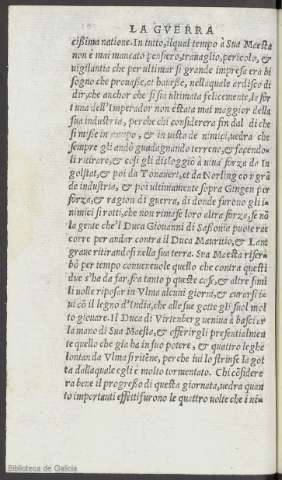 LA GVERRA
cißima natione. In tutto, ilqual tempo à Sua Maestà
non è mai mancato pensiero, trauaglio, pericolo, &
uigilantia che per ultimar sì grande impresa era bi
sogno che prouasse, et hauesse, nellaquale ardisco di
dir, che anchor che si sia ultimata felicemente, la for
tuna dell'Imperador non è stata mai maggior della
sua industria, perche chi considerera fin dal dì che
si misse in campo, & in uista de nimici, uedra che
sempre gli andò guadagnando terreno, & facendo
li ritirare, & cosi gli disloggiò à uiua forza da In
golstat, & poi da Tonauert, et da Norling con grã
de industria, & poi ultimamente sopra Gingen per
forza, & ragion di guerra, di donde furono gli i
nimici si rotti, che non rimase loro altra forza, se nõ
la gente che'l Duca Giouanni di Sassonia puote rac
corre per andar contra il Duca Mauritio, & Lant
grauе ritirandosi nella sua terra. Sua Maestà riser
bò per tempo conueneuole quello che contra questi
due s'ha da far, si a tanto per queste cose, & altre simi
li uolle riposar in Vlma alcuni giorni, & curarsi iui
cõ il legno d'India, che alle sue gotte gli suol mol
to giouare. Il Duca di Virtenberg uenina à basciar
la mano di Sua Maestà, & offerirgli presentialmen
te quello che gia ha in suo potere, & quattro leghe
lontan da Vlma si ritẽne, perche iui lo strinse la got
ta dallaquale egli è molto tormentato. Chi cõsidere
ra bene il progresso di questa giornata, uedra quan
to importanti effetti furono le quattro uolte che i ni-
Biblioteca de Galicia